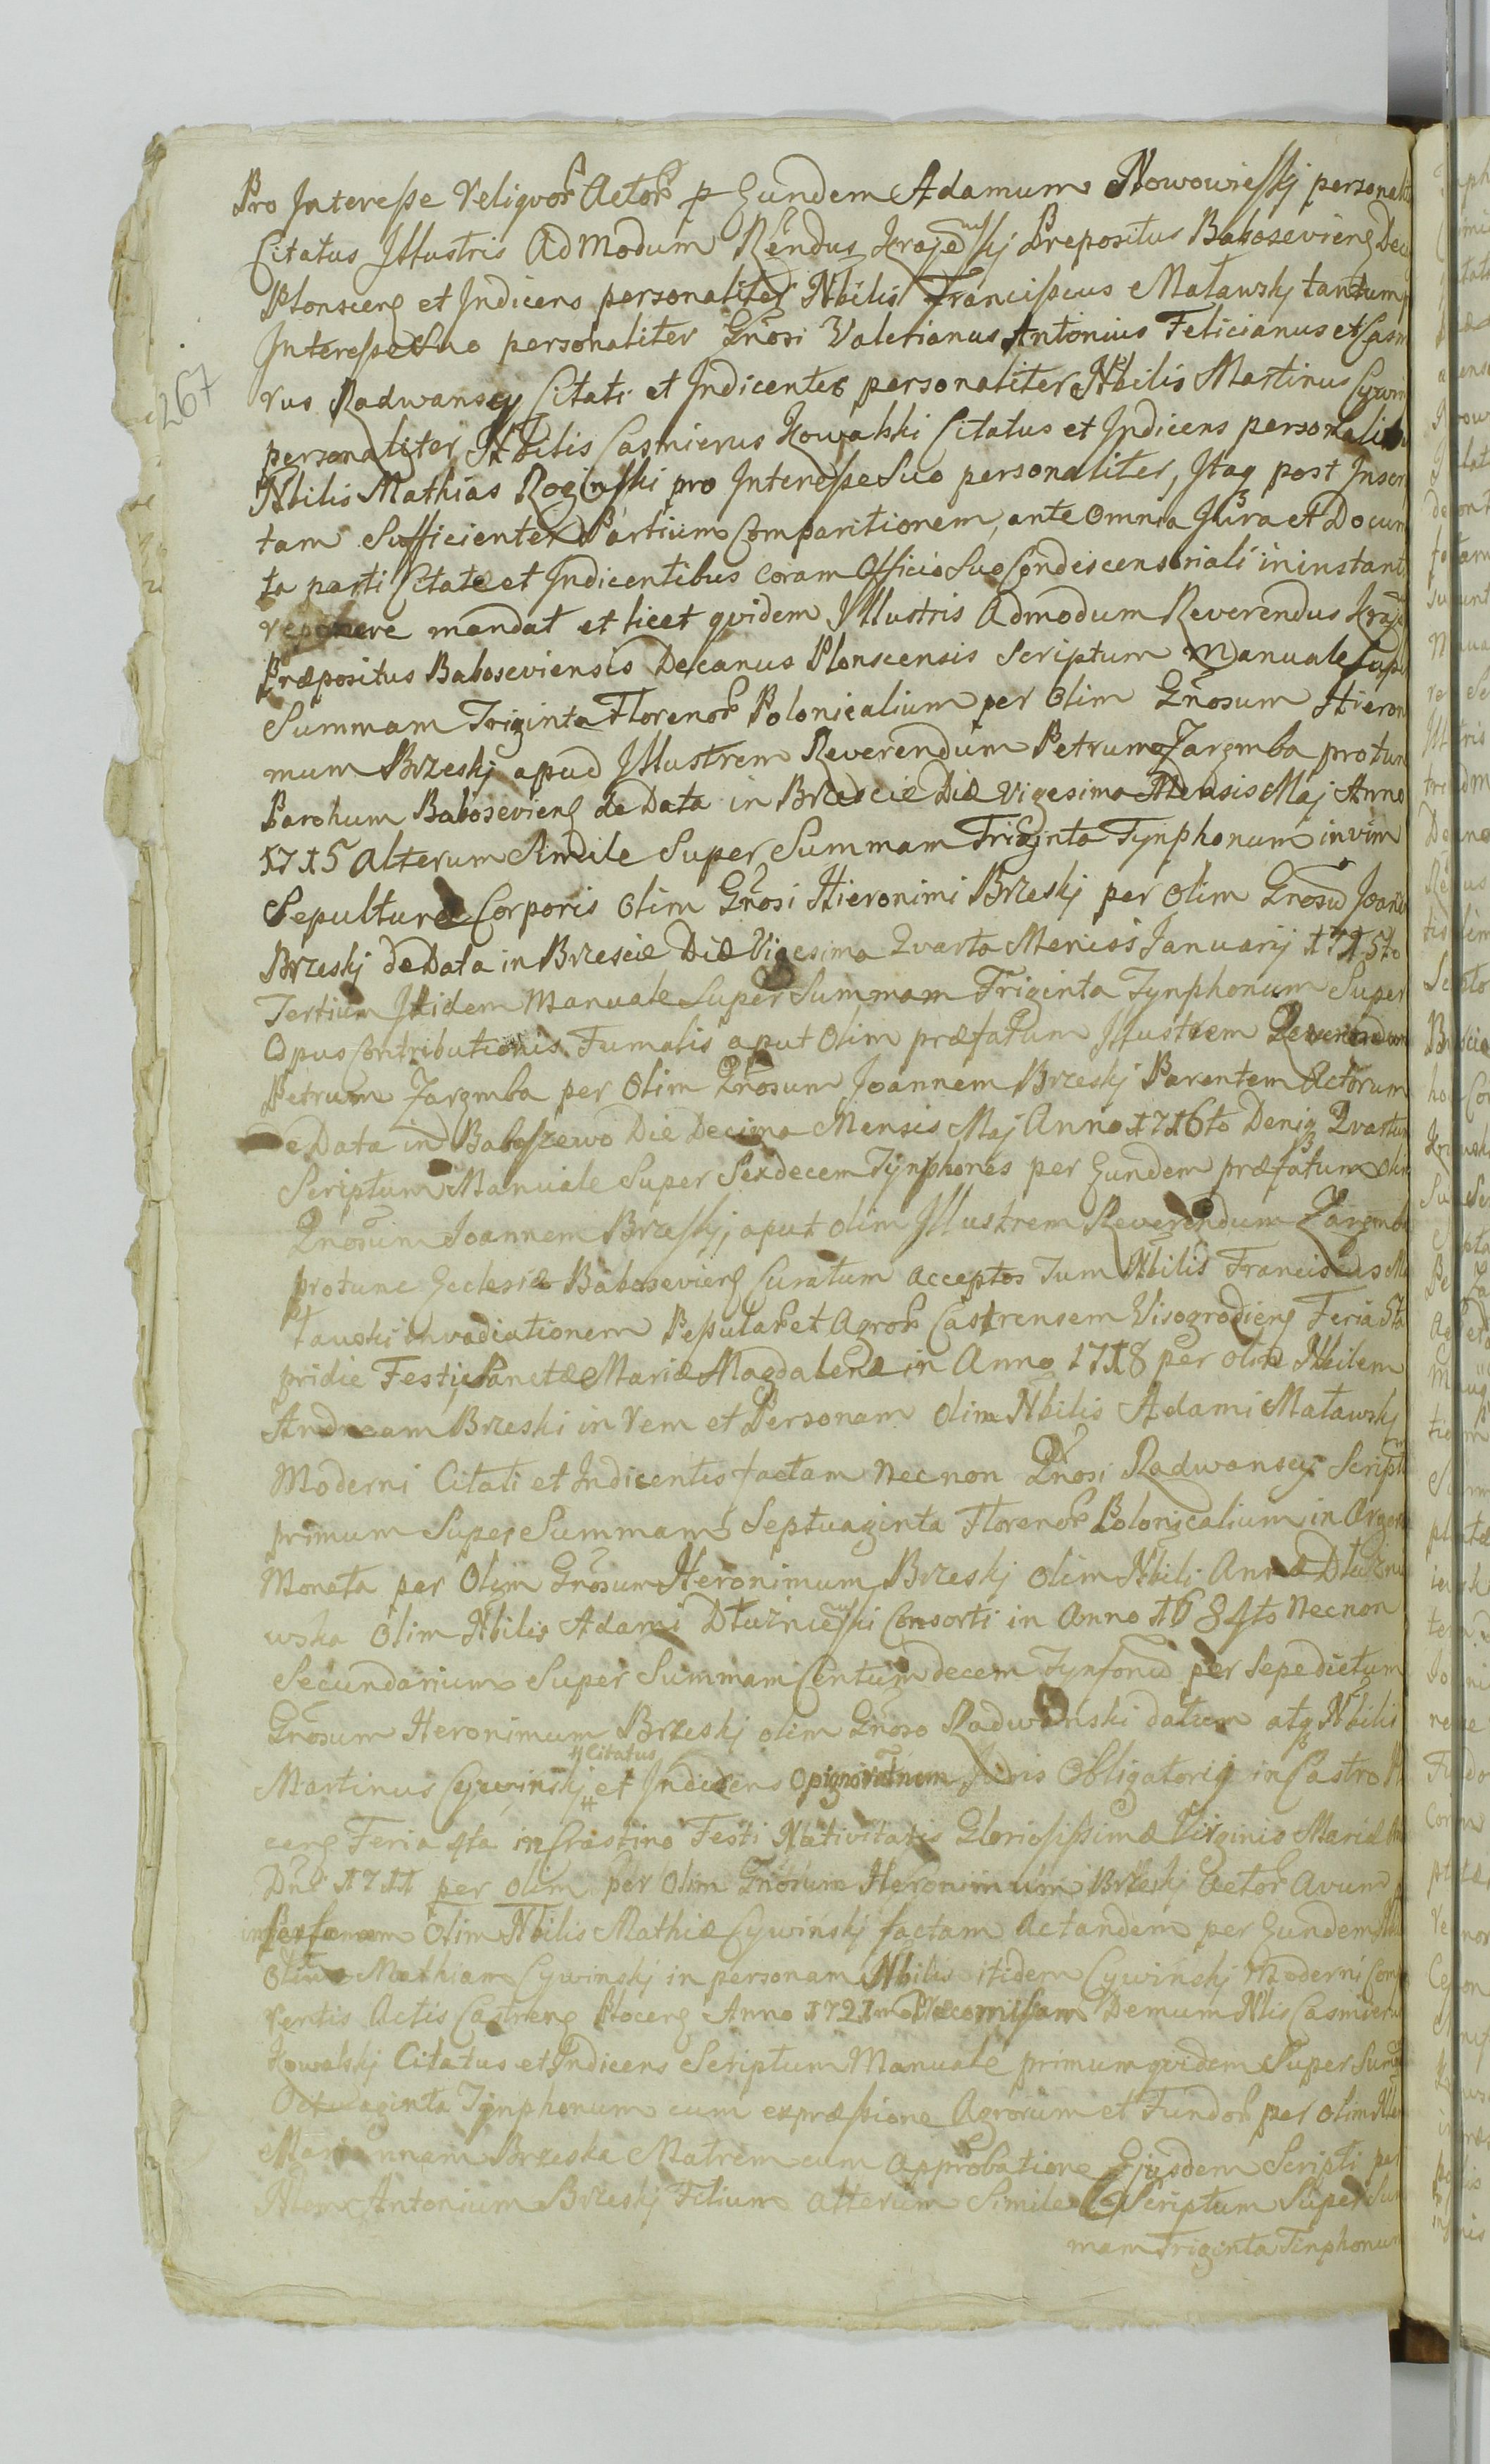 Pro Interesse reliquor Actor p Eundem Adamum Nowowiesskj personalit
Citatus Illustris Admodum Rendus Krajewskj Prepositus Baboseviens Dec
Plonscens et Indicens personaliter Nbilis Franciscus Matawskj tantum
Interesse Suo personaliter Gnosi Valerianus Antonius Felicianus et Casm
267
rus Radwanscy Citati et Indicentes personaliter Nbilis Martinus Cywin
personaliter Nbilis Casmierus Kowalski Citatus et Indicens personalit
Nbilis Mathias Roginski pro Interesse Suo personaliter, Itaq post Inser
tam Sufficienter Partium Comparitionem, ante omnia Jura et Docum
ta parti Citatæ et Indicentibus coram Officio Suo Condescensoriali in instanti
reponere mandat et licet quidem Illustris Admodum Reverendus Kraje
Præpositus Baboseviensis Decanus Plonscensis Scriptum Manuale Supe
Summam Triginta Florenor Polonicalium per Olim Gnosum Hieron
mum Brzeskj apud Illustrem Reverendum Petrum Zarembа protun
Parohum Baboseviens de Data in Brzescie Diæ Vigesima Mensis Maj Anno
1715 Alterum Simile Super Summam Triginta Tynphonum in vim
Sepulturæ Corporis Olim Gnosi Hieronimi Brzeskj per Olim Gnosu Joan
Brzeskj de Data in Brzescie Diæ Vigesima Quarta Mensis Januarij 1715to
Tertium Itidem Manuale Super Summam Triginta Tynphonum Super
Opus Contributionis Fumalis aput Olim præfatum Illustrem Reverendum
Petrum Zaremba per Olim Gnosum Joannem Brzeskj Parentem Actorum
De Data in Baboszewo Die Decima Mensis Maj Anno 1716to Deniq Quartum
Scriptum Manuale Super Sexdecem Tynphones per Eundem præfatum Olim
Gnosum Joannem Brzesskj aput olim Illustrem Reverendum Zaremb
protunc Ecclesiæ Baboseviens Curatum acceptos Tum Nbilis Franciscus Ma
tawski invadiationem Pesular et Agror Castrensem Visogrodiens Feria 5ta
pridie Festi Sanctæ Mariæ Magdalenæ in Anno 1718 per olim Nbilem
Andream Brzeski in rem et Personam olim Nbilis Adami Matawskj
Moderni Citati et Indicentis factam necnon Gnosi Radwanscy Script
primum Super Summam Septuaginta Florenor Polonicalium in Argen
Moneta per Olim Gnosum Heronimum Brzeskj olim Nbili Annæ Dłużni
wska Olim Nbilis Adami Dłużniewski Consorti in Anno 1684to necnon
Secundarium Super Summam Centum decem Tynfonu per Sepedictum
Gnosum Heronimum Brzeskj olim Gnoso Radwanski datum atq Nbilis
Martinus Cywinskj Citatus et Indicens Juris Obligatorij in Castro
cens Feria 4ta in Crastino Festi Nativitatis Gloriosissimæ Virginis Mariæ
Dni 1711 per olim per Olim Gnosum Heronimum Brzeskj Actor Avum
in Personam Olim Nbilis Mathiæ Cywinskj factam Actandem per Eundem
Olim Mathiam Cywinskj in personam Nbilis itidem Cywinskj Moderni Comp
rentis Actis Castrens Plocens Anno 1721mo Demum Nlis Casmierus
Kowalskj Citatus et Indicens Scriptum Manuale primum quidem Super Sum
Octuaginta Tynphonum cum expræssione Agrorum et Fundor per olim
Mariannam Brzeska Matrem cum Approbatione Ejusdem Scripti per
Nlem Antonium Brzeskj Filium alterum Simile Scriptum Super Su
mam Triginta Tinphonum